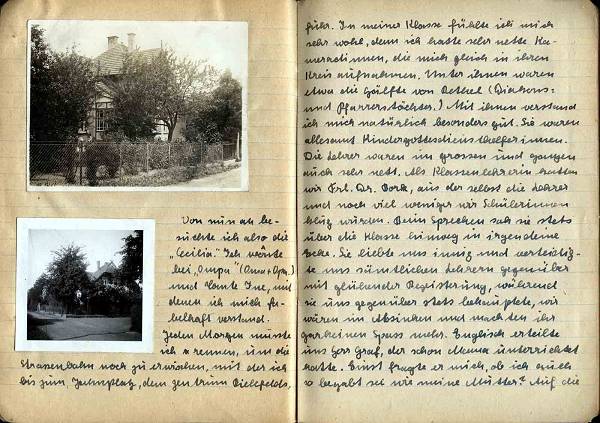 Von nun an be-
suchte ich also die
„Cecilie". Ich wohnte
bei „Ompu" (Oma + Opa)
und Tante Ine, mit
denen ich mich fa-
belhaft verstand.
Jeden Morgen musste
ich rennen, um die
Strassenbahn noch zu erwischen, mit der ich
bis zum Jahnplatz, dem Zentrum Bielefelds,
fuhr. In meiner Klasse fühlte ich mich
sehr wohl, denn ich hatte sehr nette Ka-
meradinnen, die mich gleich in ihren
Kreis aufnahmen. Unter ihnen waren
etwa die Hälfte von Bethel (Diakons-
und Pfarrerstöchter.) Mit ihnen verstand
ich mich natürlich besonders gut. Sie waren
allesamt Kindergottesdiensthelferinnen.
Die Lehrer waren im grossen und ganzen
auch sehr nett. Als Klassenlehrerin hatten
wir Frl. Dr. Bork, aus der selbst die Lehrer
und noch viel weniger wir Schülerinnen
klug wurden. Beim Sprechen sah sie stets
über die Klasse hinweg in irgendeine
Ecke. Sie liebte uns innig und verteidig-
te uns sämtlichen Lehrern gegenüber
mit glühender Begeisterung, während
sie uns gegenüber stets behauptete, wir
wären im Absinken und machten ihr
garkeinen Spass mehr. Englisch erteilte
uns Herr Graf, der schon Mama unterrichtet
hatte. Einst fragte er mich, ob ich auch
so begabt sei wie meine Mutter? Auf die